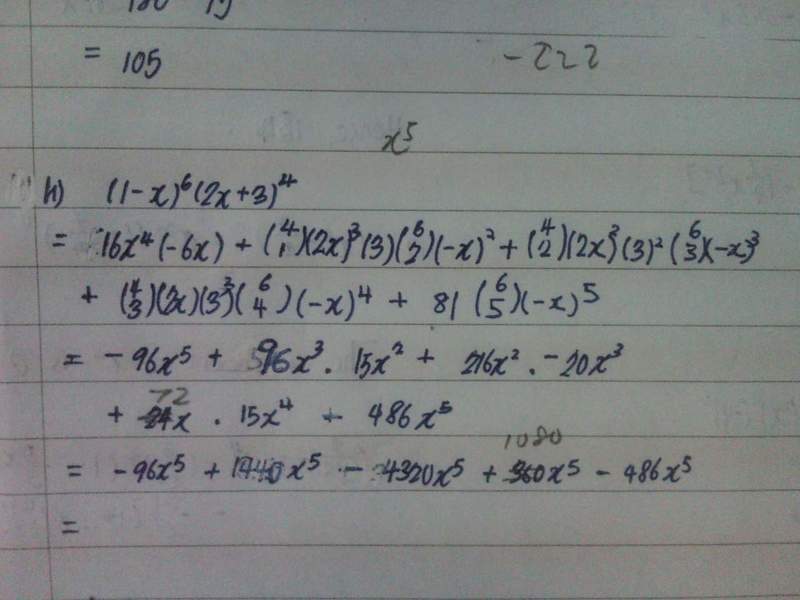 = 105
-222
x⁵
h) (1-x)⁶(2x+3)⁴
= 16x⁴(-6x) + (4 1)(2x)³(3)(6 2)(-x)² + (4 2)(2x)²(3)²(6 3)(-x)³
+ (4 3)(2x)(3³)(6 4)(-x)⁴ + 81(6 5)(-x)⁵
= -96x⁵ + 96x³ . 15x² + 216x² . -20x³
72
+ x . 15x⁴ - 486x⁵
1080
= -96x⁵ + 1440x⁵ - 4320x⁵ + 360x⁵ - 486x⁵
=